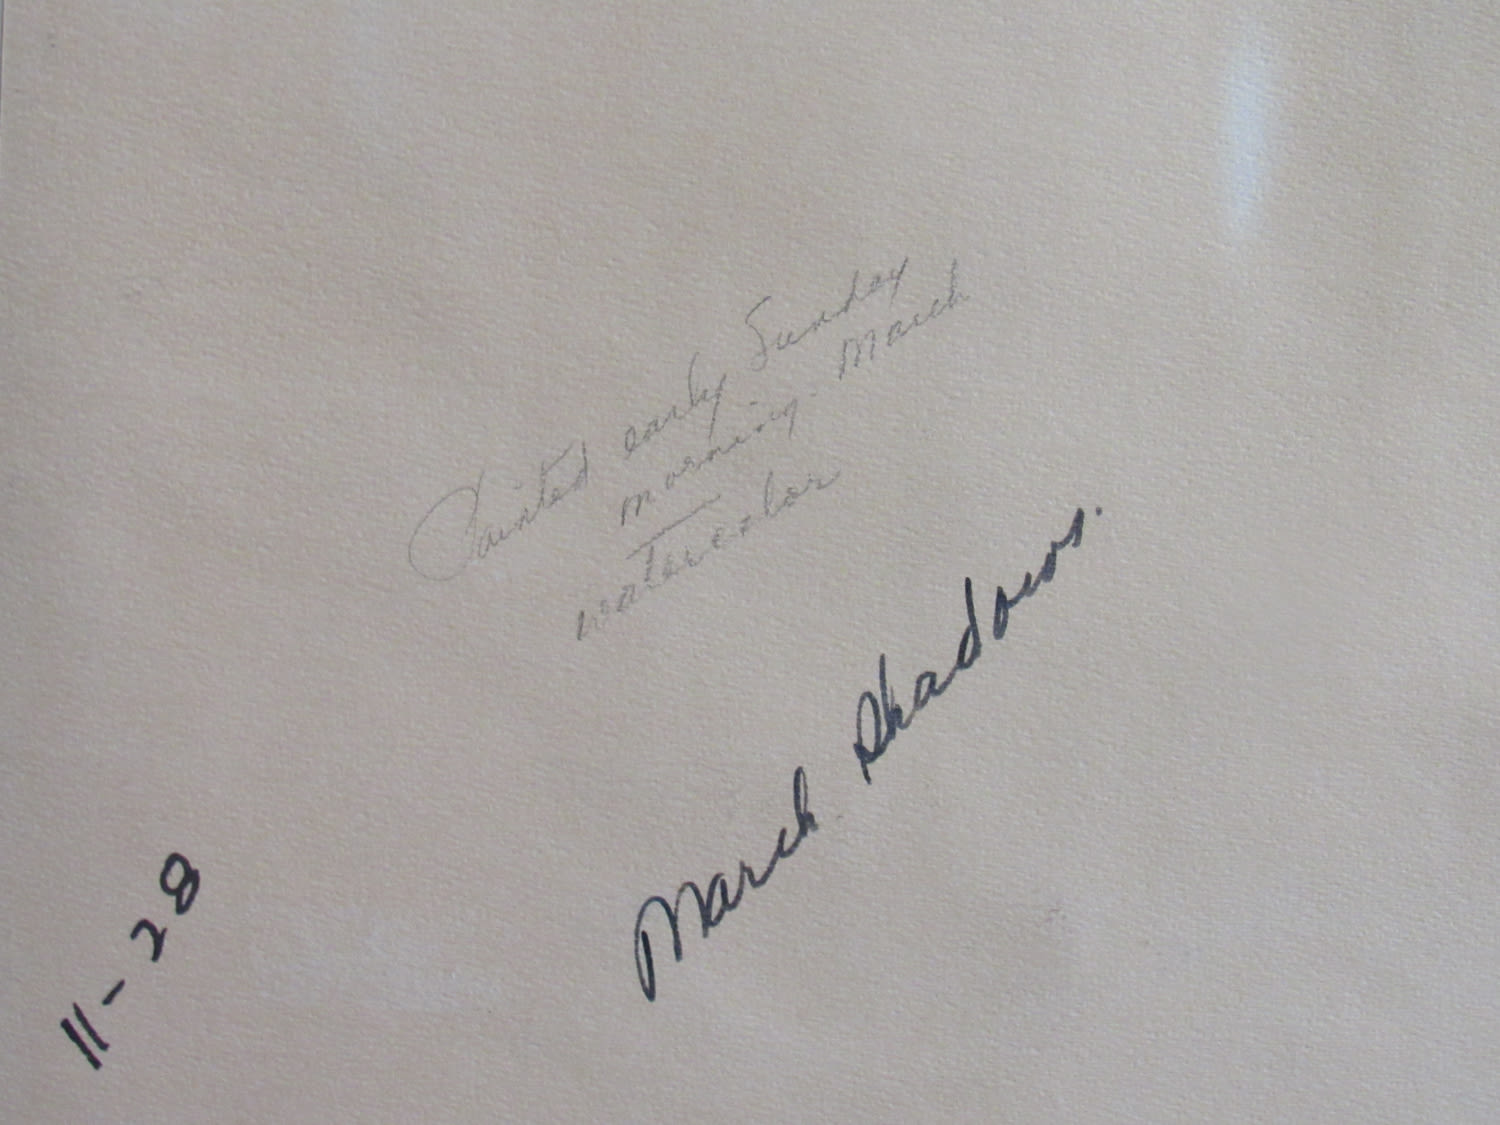 Painted early Sunday
morning. March
watercolor
March Shadows.
11-28